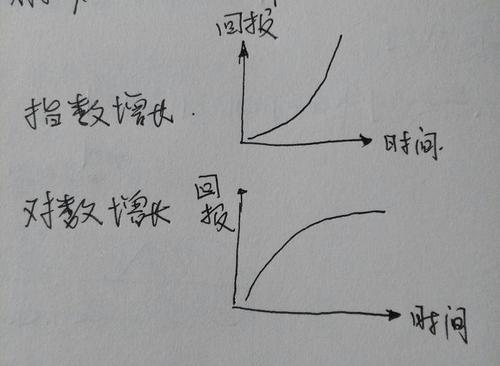 回报
指数增长.
时间.
对数增长
回
报
时间